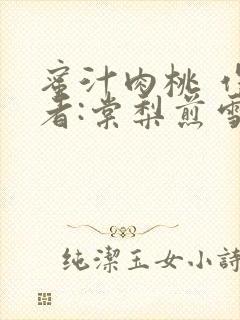 蜜汁肉桃 作
者:棠梨煎雪
纯潔玉女小詩